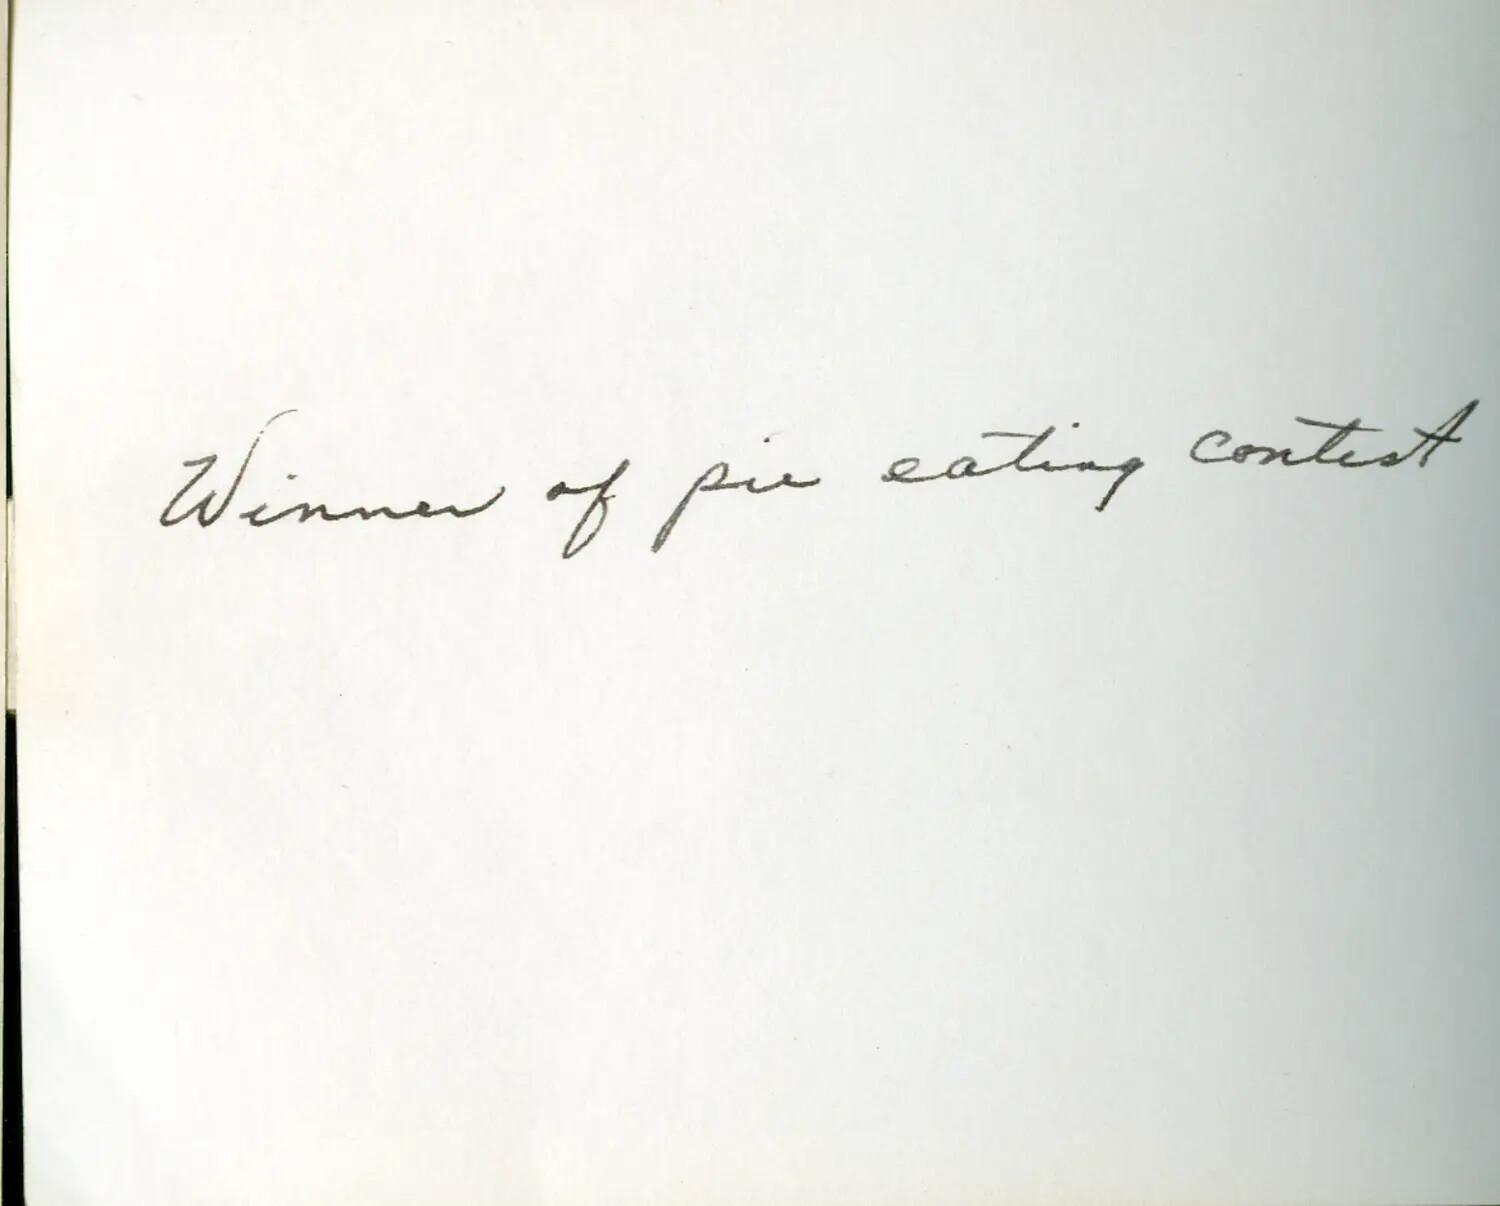 Winner of pie eating contest